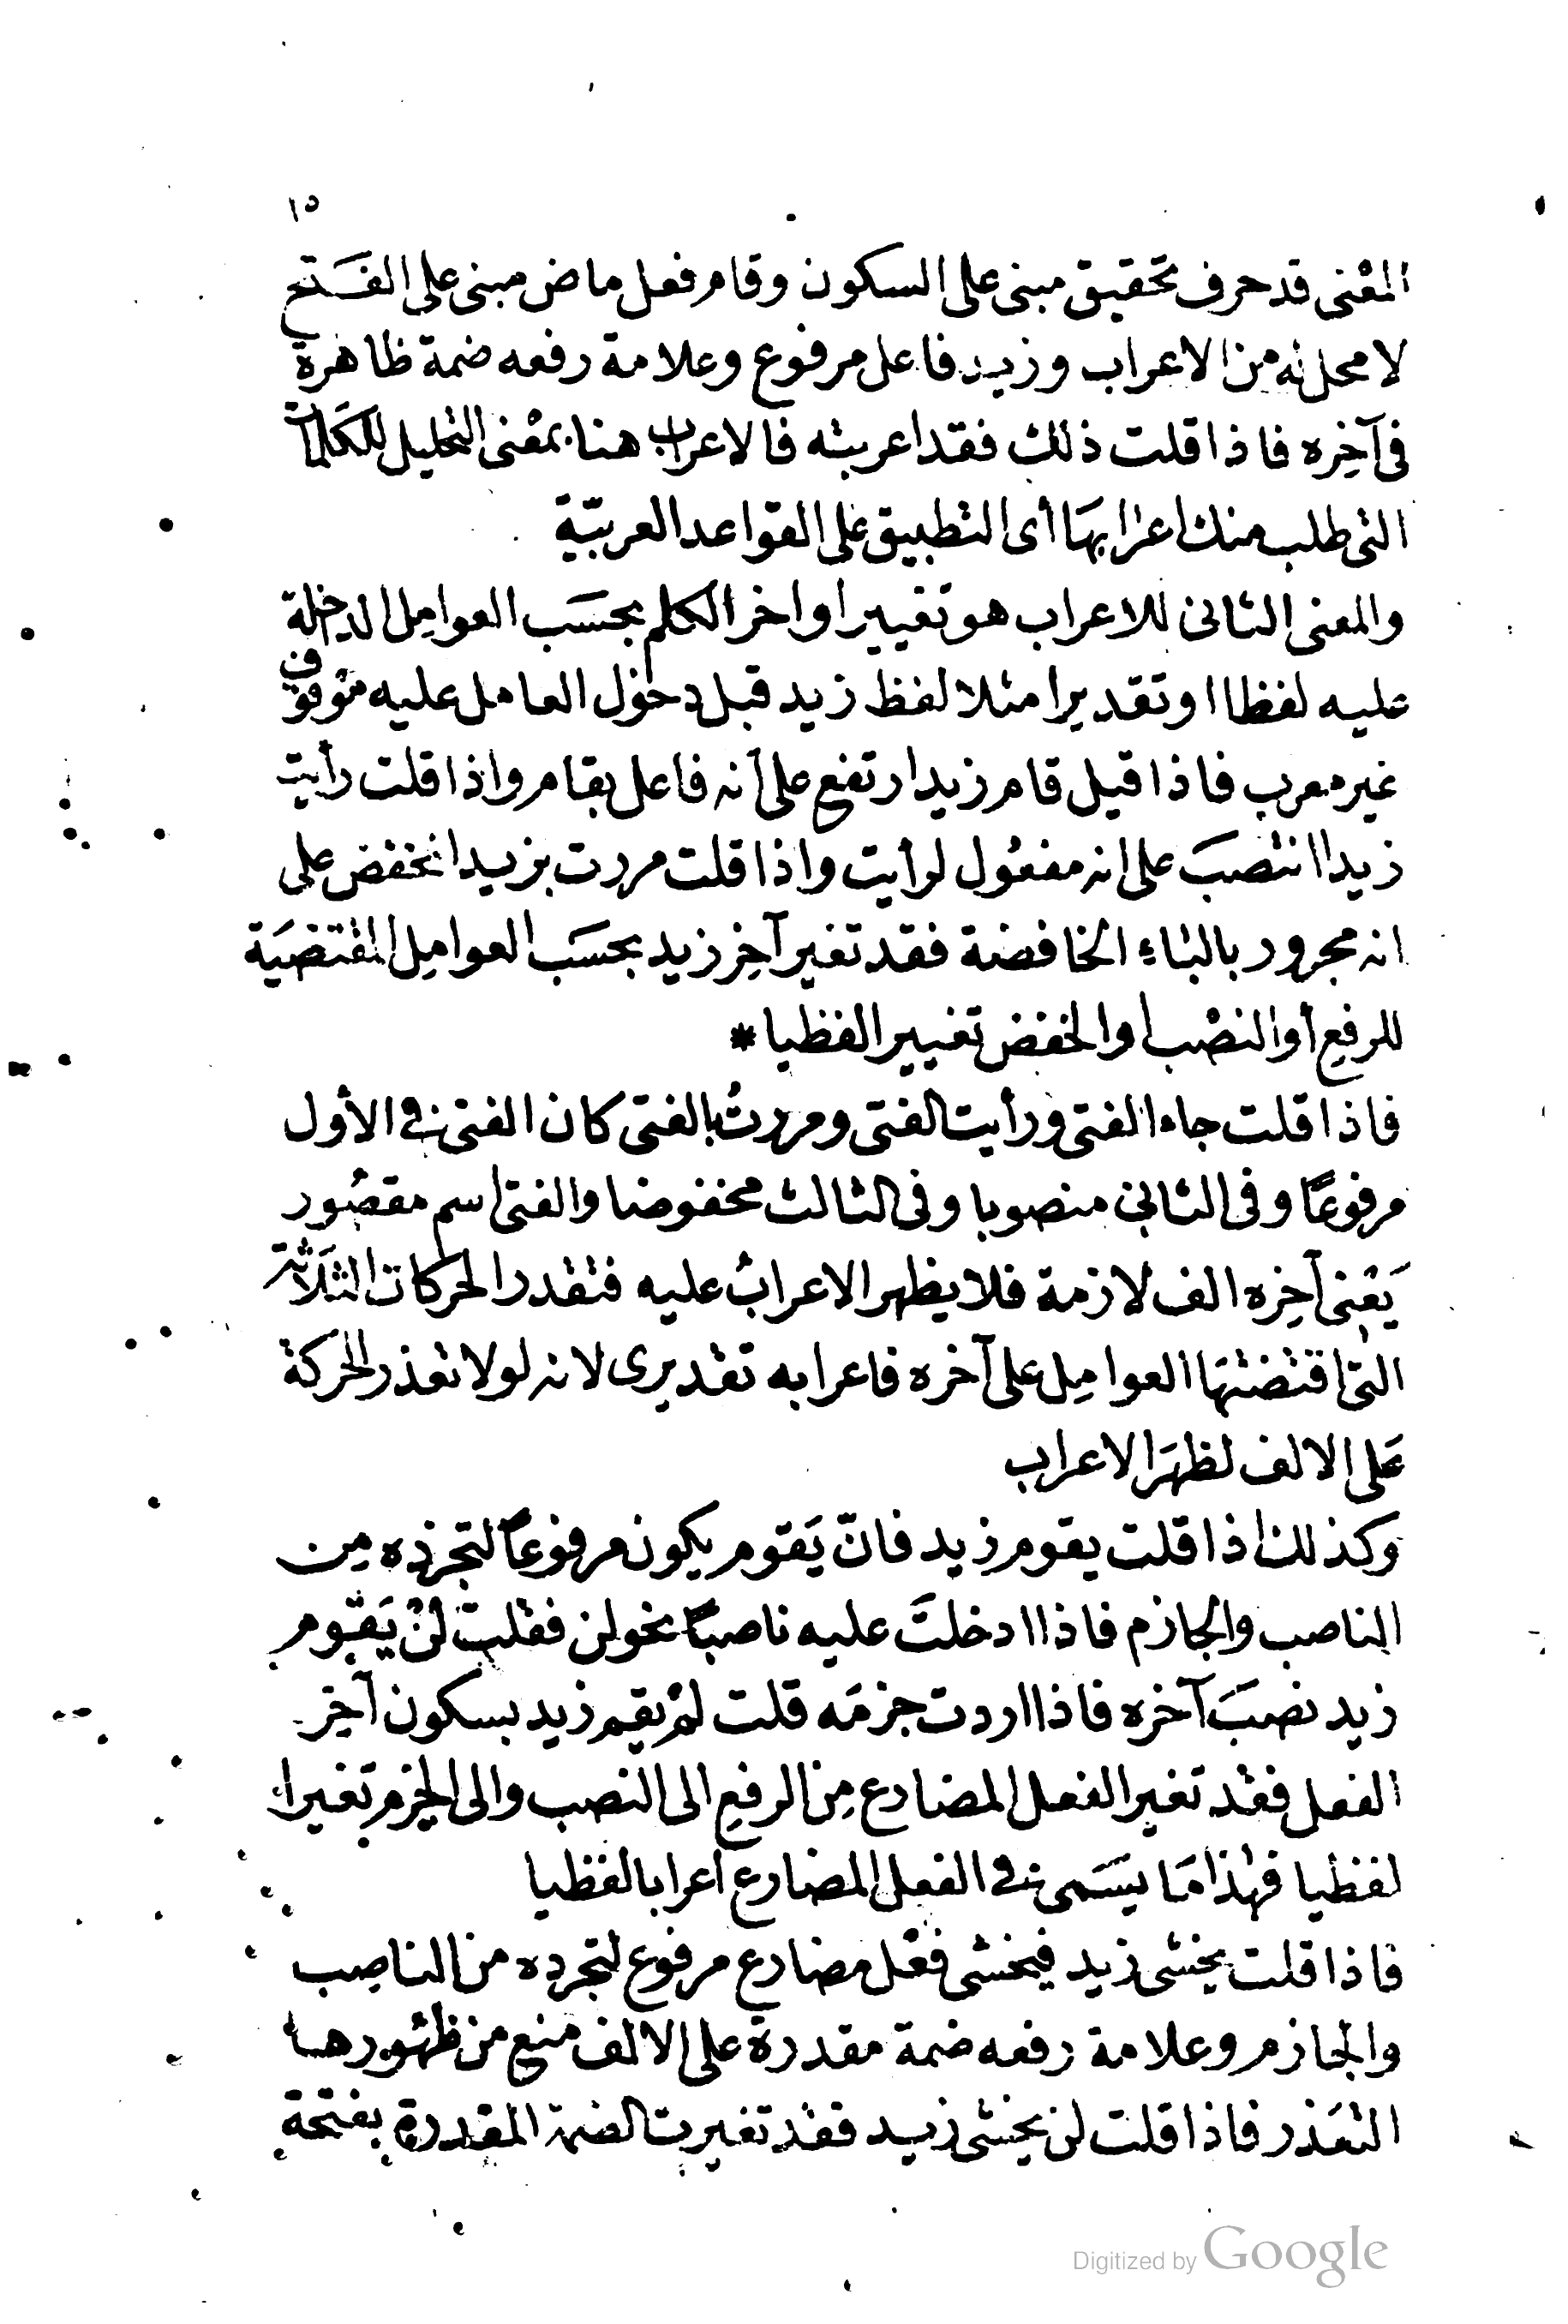 ١٥
المعْنى قد حرف تحقيق مبنى على السكون وقام فعل ماض مبنى على الفَتح
لا محل له من الاعراب وزيد فاعل مرفوع وعلامة رفعه ضمة ظاهرة
فى آخِره فاذا قلت ذلك فقد اعربته فالاعراب هنا بمعْنى التحليل للكَلمات
التى طلب منك اعرابهَا أى التطبيق على القواعد العربيّة
والمعنى الثانى للاعراب هو تغيير اواخر الكلم بحسَب العوامِل الداخلة
عليه لفظا او تقديرا مثلا لفظ زيد قبل دخول العامل عليه موقوف
غير معرب فاذا قيل قام زيد ارتفع على أنه فاعل بقام واذا قلت رأيت
زيدا انتصبَ على انه مفعُول لرأيت واذا قلت مررت بزيد انخفض على
انه مجرور بالباءِ الخافضة فقد تغير آخِر زيد بحسَب العوامِل المقتضيَة
للرفعِ أو النصْب او الخفض تغييرا لفظيا *
فاذا قلت جاء الفتى ورأيت الفتى ومررتُ بالفتى كان الفتى فى الأول
مرفوعًا وفى الثانى منصوبا وفى الثالث مخفوضا والفتى اسم مقصُور
يَعْنى آخِره الف لازمة فلا يظهر الاعرابُ عليه فتقدر الحركات الثلَاثة
التى اقتضتهَا العوامِل على آخره فاعرابه تقديرى لانه لولا تعذر الحركة
عَلى الالف لظهَر الاعراب
وكذلك اذا قلت يقوم زيد فانّ يَقوم يكون مرفوعًا لتجرّده مِن
الناصب والجازم فاذا ادخلتَ عليه ناصبًا نحو لن فقلت لنْ يَقوم
زيد نصبَ آخره فاذا اردت جزمَه قلت لمْ يقم زيد بسكون آخِر
الفعل فقد تغير الفعل المضارع مِن الرفعِ الى النصب والى الجزم تغيرا
لفظيا فهٰذا مَا يسَمى فى الفعل المضارع اعرابا لفظيا
فاذا قلت يخشى زيد فيخشى فعْل مضارع مرفوع لتجرده من الناصِب
والجازم وعلامة رفعه ضمة مقدرة على الالف منع من ظهُورها
التعَذر فاذا قلت لن يخشى زيد فقد تغيرت الضمة المقدرة بفتحة
Digitized by Google